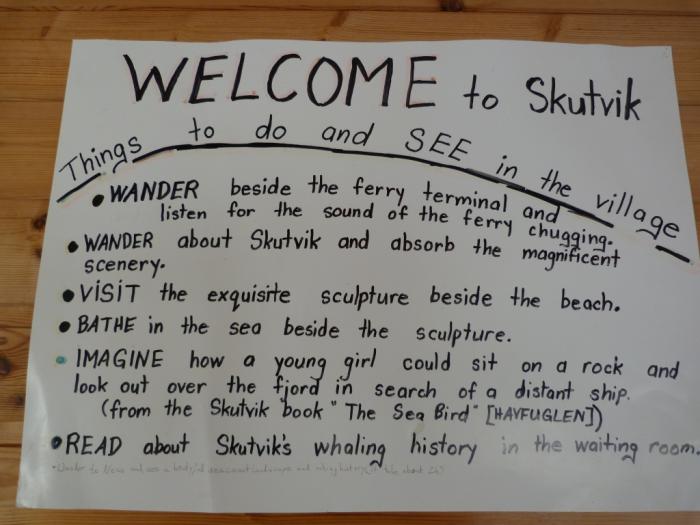 WELCOME to Skutvik
Things to do and SEE in the village
• WANDER beside the ferry terminal and
listen for the sound of the ferry chugging.
• WANDER about Skutvik and absorb the magnificent
scenery.
• VISIT the exquisite sculpture beside the beach.
• BATHE in the sea beside the sculpture.
• IMAGINE how a young girl could sit on a rock and
look out over the fjord in search of a distant ship.
(from the Skutvik book "The Sea Bird" [HAVFUGLEN])
• READ about Skutvik's whaling history in the waiting room.